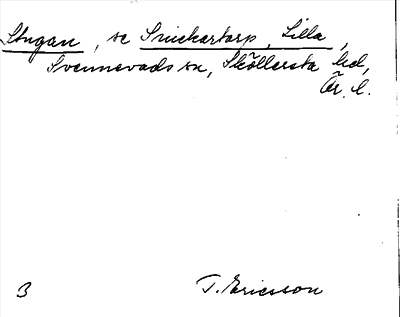 Stugan, se Snickartorp, Lilla,
Svennevads sn, Sköllersta hd,
Ör. l.
T. Ericsson
3